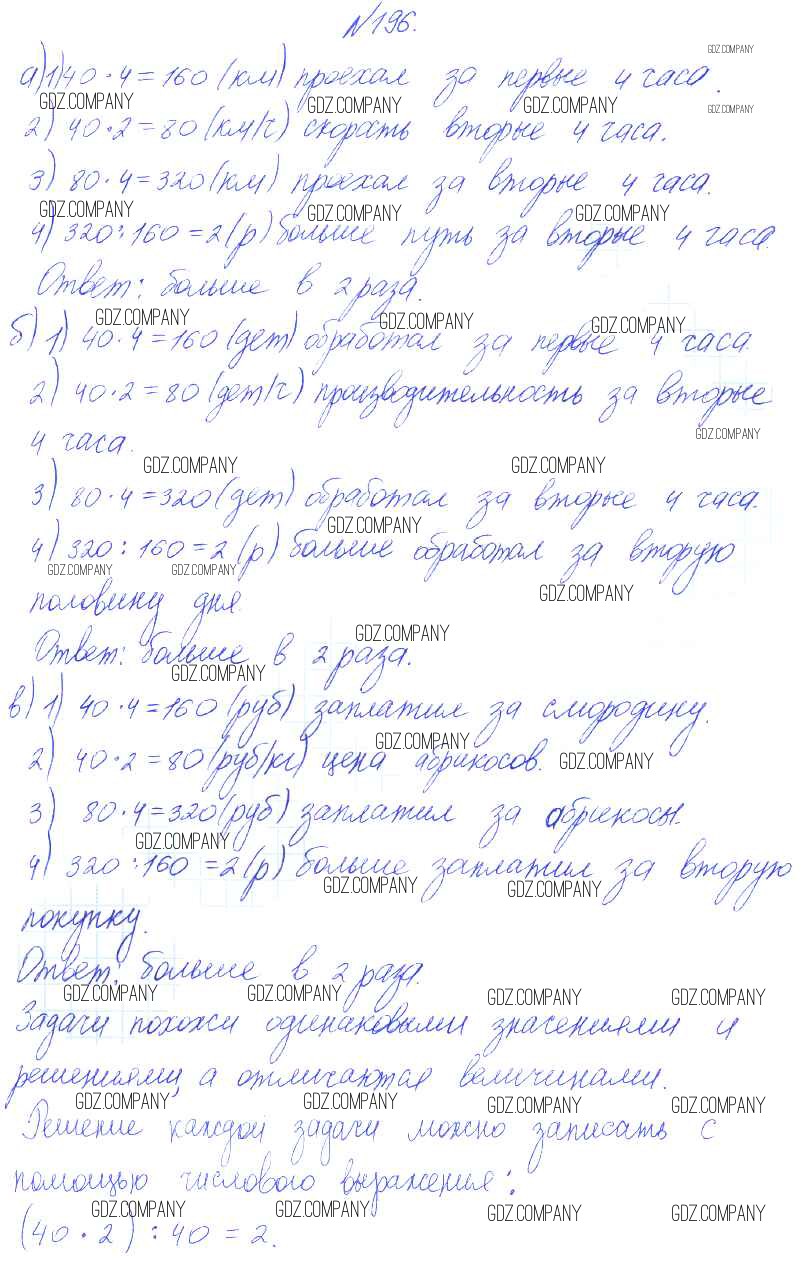 №196.
GDZ.COMPANY
а) 1) 40 · 4 = 160 (км) проехал за первые 4 часа.
GDZ.COMPANY GDZ.COMPANY GDZ.COMPANY GDZ.COMPANY
2) 40 · 2 = 80 (км/ч) скорость вторые 4 часа.
3) 80 · 4 = 320 (км) проехал за вторые 4 часа.
GDZ.COMPANY GDZ.COMPANY GDZ.COMPANY
4) 320 : 160 = 2 (р) больше путь за вторые 4 часа.
Ответ: больше в 2 раза.
GDZ.COMPANY GDZ.COMPANY GDZ.COMPANY
б) 1) 40 · 4 = 160 (дет) обработал за первые 4 часа.
2) 40 · 2 = 80 (дет/ч) производительность за вторые
4 часа.
GDZ.COMPANY
GDZ.COMPANY GDZ.COMPANY
3) 80 · 4 = 320 (дет) обработал за вторые 4 часа.
GDZ.COMPANY
4) 320 : 160 = 2 (р) больше обработал за вторую
GDZ.COMPANY GDZ.COMPANY GDZ.COMPANY
половину дня.
GDZ.COMPANY
Ответ: больше в 2 раза.
GDZ.COMPANY
в) 1) 40 · 4 = 160 (руб) заплатил за смородину.
GDZ.COMPANY
2) 40 · 2 = 80 (руб/кг) цена абрикосов. GDZ.COMPANY
3) 80 · 4 = 320 (руб) заплатил за абрикосы.
GDZ.COMPANY
4) 320 : 160 = 2 (р) больше заплатил за вторую
GDZ.COMPANY GDZ.COMPANY
покупку.
Ответ: больше в 2 раза.
GDZ.COMPANY GDZ.COMPANY GDZ.COMPANY GDZ.COMPANY
Задачи похожи одинаковыми значениями и
решениями, а отличаются величинами.
GDZ.COMPANY GDZ.COMPANY GDZ.COMPANY GDZ.COMPANY
Решение каждой задачи можно записать с
помощью числового выражения:
GDZ.COMPANY GDZ.COMPANY GDZ.COMPANY GDZ.COMPANY
(40 · 2) : 40 = 2.